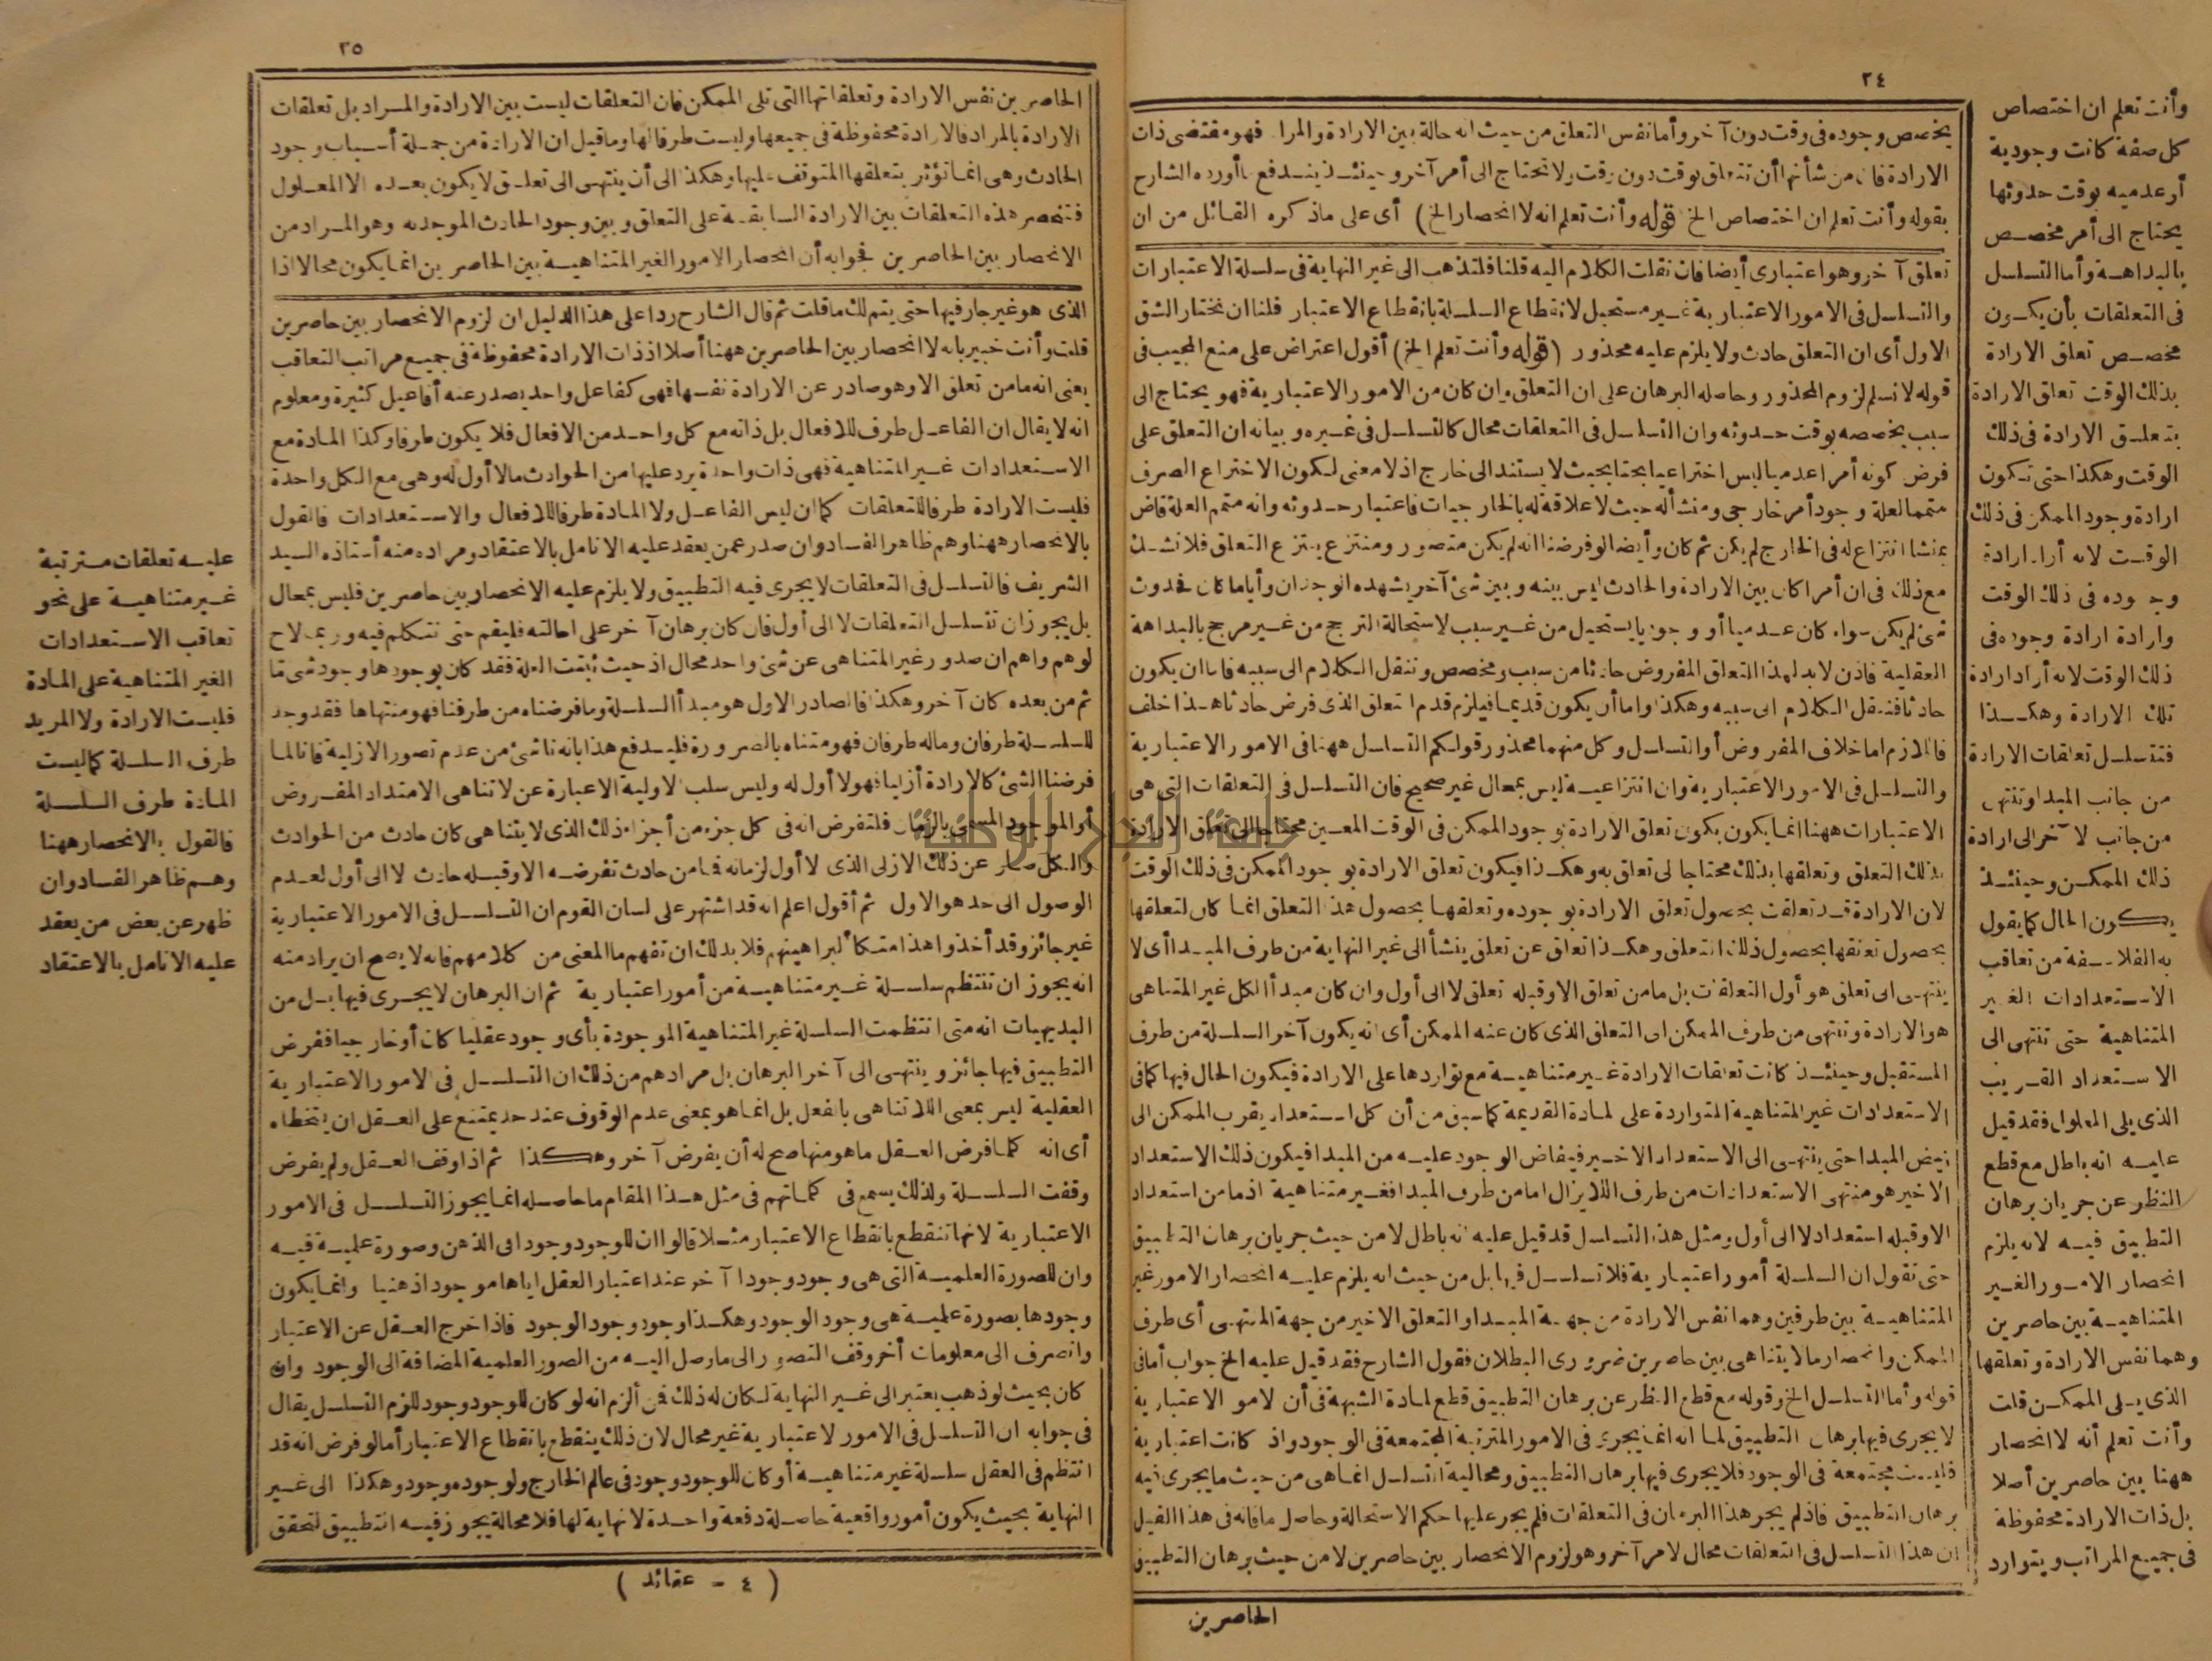 ٢٤
وأنت تعلم ان اختصاص
كل صفة كانت وجودية
أو عدميه بوقت حدوثها
يحتاج الى أمر مخصص
بالبداهة وأما التسلسل
فى التعلقات بأن يكون
مخصص تعلق الارادة
بذلك الوقت تعلق الارادة
بتعلق الارادة فى ذلك
الوقت وهكذا حتى تكون
ارادة وجود الممكن فى ذلك
الوقت لانه أراد ارادة
وجوده فى ذلك الوقت
وارادة ارادة وجوده فى
ذلك الوقت لانه أراد ارادة
تلك الارادة وهكذا
فتتسلسل تعلقات الارادة
من جانب المبدا وتنتهى
من جانب الآخر الى ارادة
ذلك الممكن وحينئذ
يكون الحال كما يقول
به الفلاسفة من تعاقب
الاستعدادات الغير
المتناهية حتى تنتهى الى
الاستعداد القريب
الذى يلى المعلول فقد قيل
عليه انه باطل مع قطع
النظر عن جريان برهان
التطبيق فيه لانه يلزم
انحصار الامور الغير
المتناهية بين حاصرين
وهما نفس الارادة وتعلقها
الذى يلى الممكن قلت
وأنت تعلم أنه لا انحصار
ههنا بين حاصرين أصلا
بل ذات الارادة محفوظة
فى جميع المراتب ويتوارد
يخصص وجوده فى وقت دون آخر وأما نفس التعلق من حيث انه حالة بين الارادة والمراد فهو مقتضى ذات
الارادة فان من شأنها أن تتعلق بوقت دون وقت ولا تحتاج الى أمر آخر وحينئذ يندفع ما أورده الشارح
بقوله وأنت تعلم ان اختصاص الخ قوله وأنت تعلم انه لا انحصار الخ) أى على ماذكره القائل من ان
تعلق آخر وهو اعتبارى أيضا فان نقلت الكلام اليه قلنا فلتذهب الى غير النهاية فى سلسلة الاعتبارات
والتسلسل فى الامور الاعتبارية غير مستحيل لانقطاع السلسلة بانقطاع الاعتبار قلنا ان نختار الشق
الاول أى ان التعلق حادث ولا يلزم عليه محذور (قوله وأنت تعلم الخ) أقول اعتراض على منع المجيب فى
قوله لا نسلم لزوم المحذور وحاصله البرهان على ان التعلق وان كان من الامور الاعتبارية فهو يحتاج الى
سبب يخصصه بوقت حدوثه وان التسلسل فى التعلقات محال كالتسلسل فى غيره وبيانه ان التعلق على
فرض كونه أمرا عدميا ليس اختراعيا بحتا بحيث لا يستند الى خارج اذ لا معنى لكون الاختراع الصرف
متمما لعلة وجود أمر خارجى ومنشأ له حيث لا علاقة له بالخارجيات فاعتبار حدوثه وانه متمم العلة قاض
بمنشا انتزاع له فى الخارج لم يكن ثم كان وأيضا لو فرضنا انه لم يكن متصور ومنتزع ينتزع التعلق فلا نشك
مع ذلك فى ان أمرا كان بين الارادة والحادث ليس بينه وبين شئ آخر يشهده الوجدان وأياما كان فحدوث
شئ لم يكن سواء كان عدميا أو وجوديا يستحيل من غير سبب لاستحالة الترجح من غير مرجح بالبداهة
العقلية فاذن لا بد لهذا التعلق المفروض حادثا من سبب ومخصص وننقل الكلام الى سببه فاما ان يكون
حادثا فننقل الكلام الى سببه وهكذا واما أن يكون قديما فيلزم قدم التعلق الذى فرض حادثا هذا خلف
فاللازم اما خلاف المفروض أو التسلسل وكل منهما محذور قولكم التسلسل ههنا فى الامور الاعتبارية
والتسلسل فى الامور الاعتبارية وان انتزاعية ليس بمحال غير صحيح فان التسلسل فى التعلقات التى هى
الاعتبارات ههنا انما يكون بكون تعلق الارادة بوجود الممكن فى الوقت المعين محتاجا الى تعلق الارادة
بذلك التعلق وتعلقها بذلك محتاجا الى تعلق به وهكذا فيكون تعلق الارادة بوجود الممكن فى ذلك الوقت
لان الارادة قد تعلقت بحصول تعلق الارادة بوجوده وتعلقها بحصول هذا التعلق انما كان لتعلقها
بحصول تعلقها بحصول ذلك التعلق وهكذا تعلق عن تعلق ينشأ الى غير النهاية من طرف المبدا أى لا
ينتهى الى تعلق هو أول التعلقات بل ما من تعلق الا وقبله تعلق لا الى أول وان كان مبدأ الكل غير المتناهى
هو الارادة وتنتهى من طرف الممكن الى التعلق الذى كان عنه الممكن أى انه يكون آخر السلسلة من طرف
المستقبل وحينئذ كانت تعلقات الارادة غير متناهية مع تواردها على الارادة فيكون الحال فيها كما فى
الاستعدادات غير المتناهية المتواردة على المادة القديمة كما سبق من أن كل استعداد يقرب الممكن الى
فيض المبدا حتى ينتهى الى الاستعداد الاخير فيفاض الوجود عليه من المبدا فيكون ذلك الاستعداد
الاخير هو منتهى الاستعدادات من طرف اللايزال اما من طرف المبدا فغير متناهية اذ ما من استعداد
الا وقبله استعداد لا الى أول ومثل هذا التسلسل قد قيل عليه انه باطل لا من حيث جريان برهان التطبيق
حتى تقول ان السلسلة أمور اعتبارية فلا تسلسل فيها بل من حيث انه يلزم عليه انحصار الامور غير
المتناهية بين طرفين وهما نفس الارادة من جهة المبدا والتعلق الاخير من جهة المنتهى أى طرف
الممكن وانحصار ما لا يتناهى بين حاصرين ضرورى البطلان فقول الشارح فقد قيل عليه الخ جواب أما فى
قوله وأما التسلسل الخ وقوله مع قطع النظر عن برهان التطبيق قطع لمادة الشبهة فى أن الامور الاعتبارية
لا يجرى فيها برهان التطبيق لما انه انما يجرى فى الامور المترتبة المجتمعة فى الوجود واذ كانت اعتبارية
فليست مجتمعة فى الوجود فلا يجرى فيها برهان التطبيق ومحالية التسلسل انما هى من حيث ما يجرى فيه
برهان التطبيق فاذ لم يجر هذا البرهان فى التعلقات فلم يجر عليها حكم الاستحالة وحاصل ما قاله فى هذا القيل
ان هذا التسلسل فى التعلقات محال لامر آخر وهو لزوم الانحصار بين حاصرين لا من حيث برهان التطبيق
الحاصرين
٢٥
الحاصرين نفس الارادة وتعلقاتها التى تلى الممكن فان التعلقات ليست بين الارادة والمراد بل تعلقات
الارادة بالمراد فالارادة محفوظة فى جميعها وليست طرفا لها وما قيل ان الارادة من جملة أسباب وجود
الحادث وهى انما تؤثر بتعلقها المتوقف عليها وهكذا الى أن ينتهى الى تعلق لا يكون بعده الا المعلول
فتنحصر هذه التعلقات بين الارادة السابقة على التعلق وبين وجود الحادث الموجد به وهو المراد من
الانحصار بين الحاصرين فجوابه أن انحصار الامور الغير المتناهية بين الحاصرين انما يكون محالا اذا
الذى هو غير جار فيها حتى يتم لك ما قلت ثم قال الشارح ردا على هذا الدليل ان لزوم الانحصار بين حاصرين
قلت وأنت خبير بانه لا انحصار بين الحاصرين ههنا أصلا اذ ذات الارادة محفوظة فى جميع مراتب التعاقب
يعنى انه ما من تعلق الا وهو صادر عن الارادة نفسها فهى كفاعل واحد يصدر عنه أفاعيل كثيرة ومعلوم
انه لا يقال ان الفاعل طرف للافعال بل ذاته مع كل واحد من الافعال فلا يكون طرفا وكذا المادة مع
الاستعدادات غير المتناهية فهى ذات واحدة يرد عليها من الحوادث ما لا أول له وهى مع الكل واحدة
فليست الارادة طرفا للتعلقات كما ان ليس الفاعل ولا المادة طرفا للافعال والاستعدادات فالقول
بالانحصار ههنا وهم ظاهر الفساد وان صدر عمن يعقد عليه الانامل بالاعتقاد ومراده منه أستاذه السيد
الشريف فالتسلسل فى التعلقات لا يجرى فيه التطبيق ولا يلزم عليه الانحصار بين حاصرين فليس بمحال
بل يجوز ان تتسلسل التعلقات لا الى أول فان كان برهان آخر على احالته فليقم حتى نتكلم فيه وربما لاح
لوهم واهم ان صدور غير المتناهى عن شئ واحد محال اذ حيث ثبتت العلة فقد كان بوجودها وجود شئ ما
ثم من بعده كان آخر وهكذا فالصادر الاول هو مبدأ السلسلة وما فرضناه من طرفنا فهو منتهاها فقد وجد
للسلسلة طرفان وماله طرفان فهو متناه بالضرورة فليدفع هذا بانه ناشئ من عدم تصور الازلية فانا لما
فرضنا الشئ كالارادة أزليا فهو لا أول له وليس سلب الاولية الا عبارة عن لا تناهى الامتداد المفروض
أو الموجود المسمى بالزمان فلتفرض انه فى كل جزء من أجزاء ذلك الذى لا يتناهى كان حادث من الحوادث
والكل صادر عن ذلك الازلى الذى لا أول لزمانه فما من حادث تفرضه الا وقبله حادث لا الى أول لعدم
الوصول الى حد هو الاول ثم أقول اعلم انه قد اشتهر على لسان القوم ان التسلسل فى الامور الاعتبارية
غير جائز وقد أخذوا هذا متكأ لبراهينهم فلا بد لك ان تفهم ما المعنى من كلامهم فانه لا يصح ان يراد منه
انه يجوز ان تنتظم سلسلة غير متناهية من أمور اعتبارية ثم ان البرهان لا يجرى فيها بل من
البديهيات انه متى انتظمت السلسلة غير المتناهية الموجودة بأى وجود عقليا كان أو خارجيا ففرض
التطبيق فيها جائز وينتهى الى آخر البرهان بل مرادهم من ذلك ان التسلسل فى الامور الاعتبارية
العقلية ليس بمعنى اللاتناهى بالفعل بل انما هو بمعنى عدم الوقوف عند حد يمتنع على العقل ان يتخطاه
أى انه كلما فرض العقل ما هو منها صح له أن يفرض آخر وهكذا ثم اذا وقف العقل ولم يفرض
وقفت السلسلة ولذلك يسمع فى كلماتهم فى مثل هذا المقام ما حاصله انما يجوز التسلسل فى الامور
الاعتبارية لانها تنقطع بانقطاع الاعتبار مثلا قالوا ان للوجود وجودا فى الذهن وصورة علمية فيه
وان للصورة العلمية التى هى وجود وجودا آخر عند اعتبار العقل اياها موجودا ذهنيا وانما يكون
وجودها بصورة علمية هى وجود الوجود وهكذا وجود وجود الوجود فاذا خرج العقل عن الاعتبار
وانصرف الى معلومات أخر وقف التصور الى ما وصل اليه من الصور العلمية المضافة الى الوجود وان
كان بحيث لو ذهب يعتبر الى غير النهاية لكان له ذلك فمن ألزم انه لو كان للوجود وجود للزم التسلسل يقال
فى جوابه ان التسلسل فى الامور الاعتبارية غير محال لان ذلك ينقطع بانقطاع الاعتبار أما لو فرض انه قد
انتظم فى العقل سلسلة غير متناهية أو كان للوجود وجود فى عالم الخارج ولوجوده وجود وهكذا الى غير
النهاية بحيث يكون أمور واقعية حاصلة دفعة واحدة لا نهاية لها فلا محالة يجوز فيه التطبيق لتحقق
(٤ - عقائد)
عليه تعلقات مترتبة
غير متناهية على نحو
تعاقب الاستعدادات
الغير المتناهية على المادة
فليست الارادة ولا المريد
طرف السلسلة كما ليست
المادة طرف السلسلة
فالقول بالانحصار ههنا
وهم ظاهر الفساد وان
ظهر عن بعض من يعقد
عليه الانامل بالاعتقاد
جامعة النجاح الوطنية